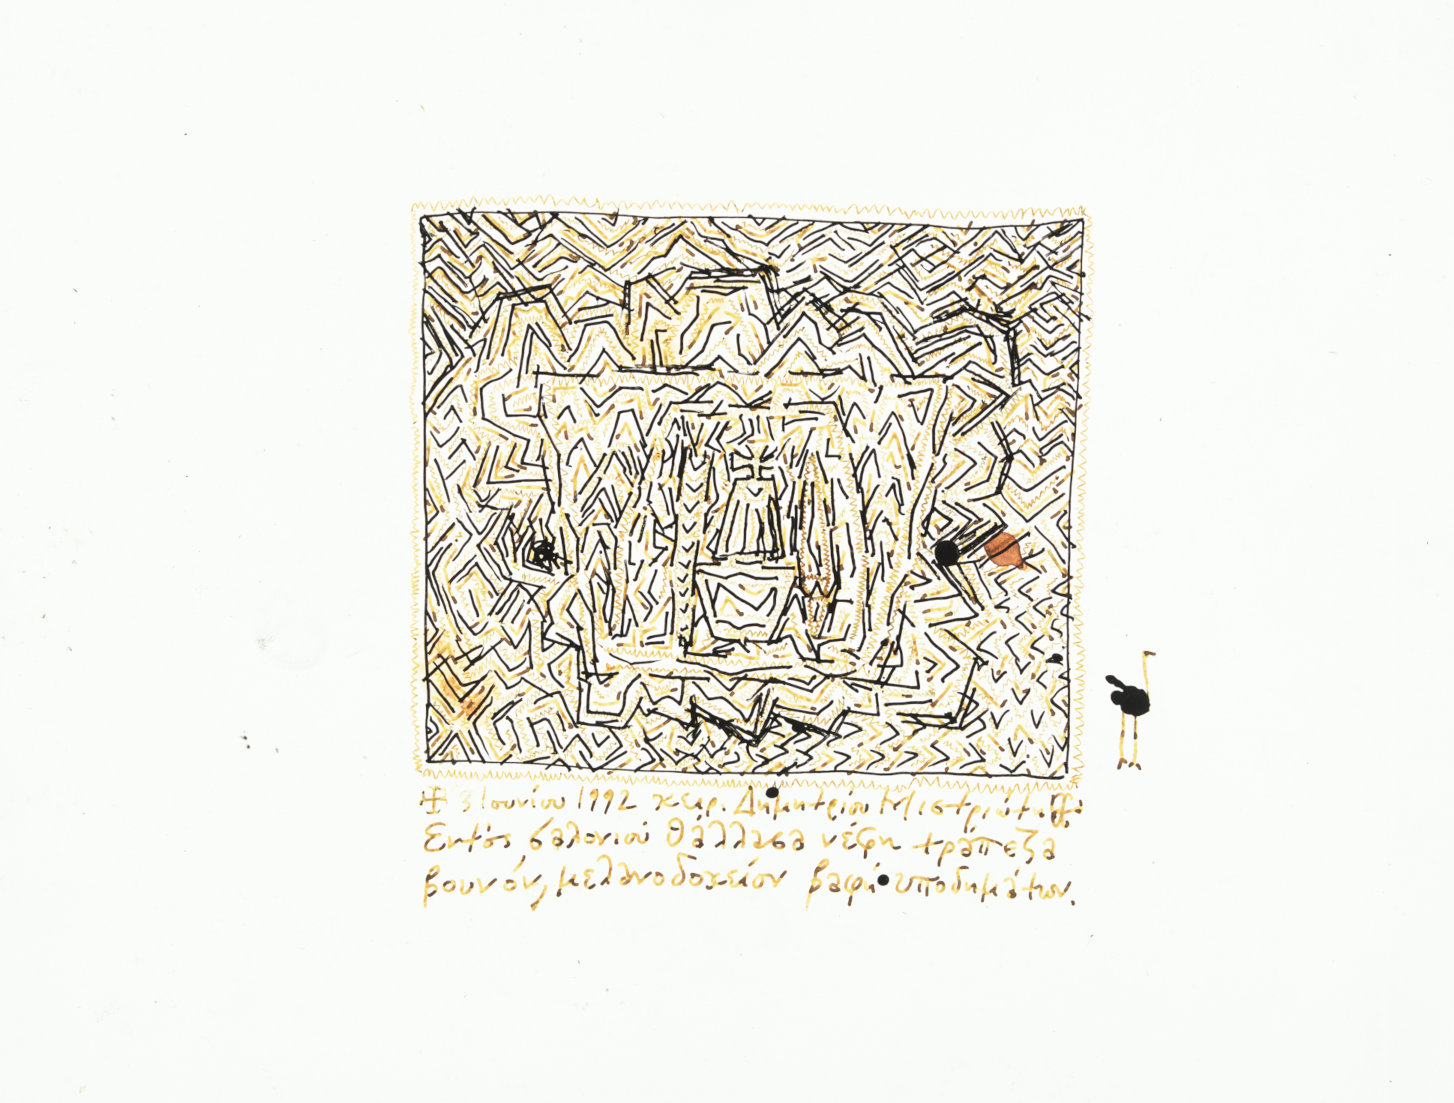 3 Ιουνίου 1992 χειρ. Δημητρίου Μιστριώτη
Εντός σαλονιού θάλλασα νέφη τράπεζα
βουνόν, μελανοδοχείον βαφή υποδημάτων.